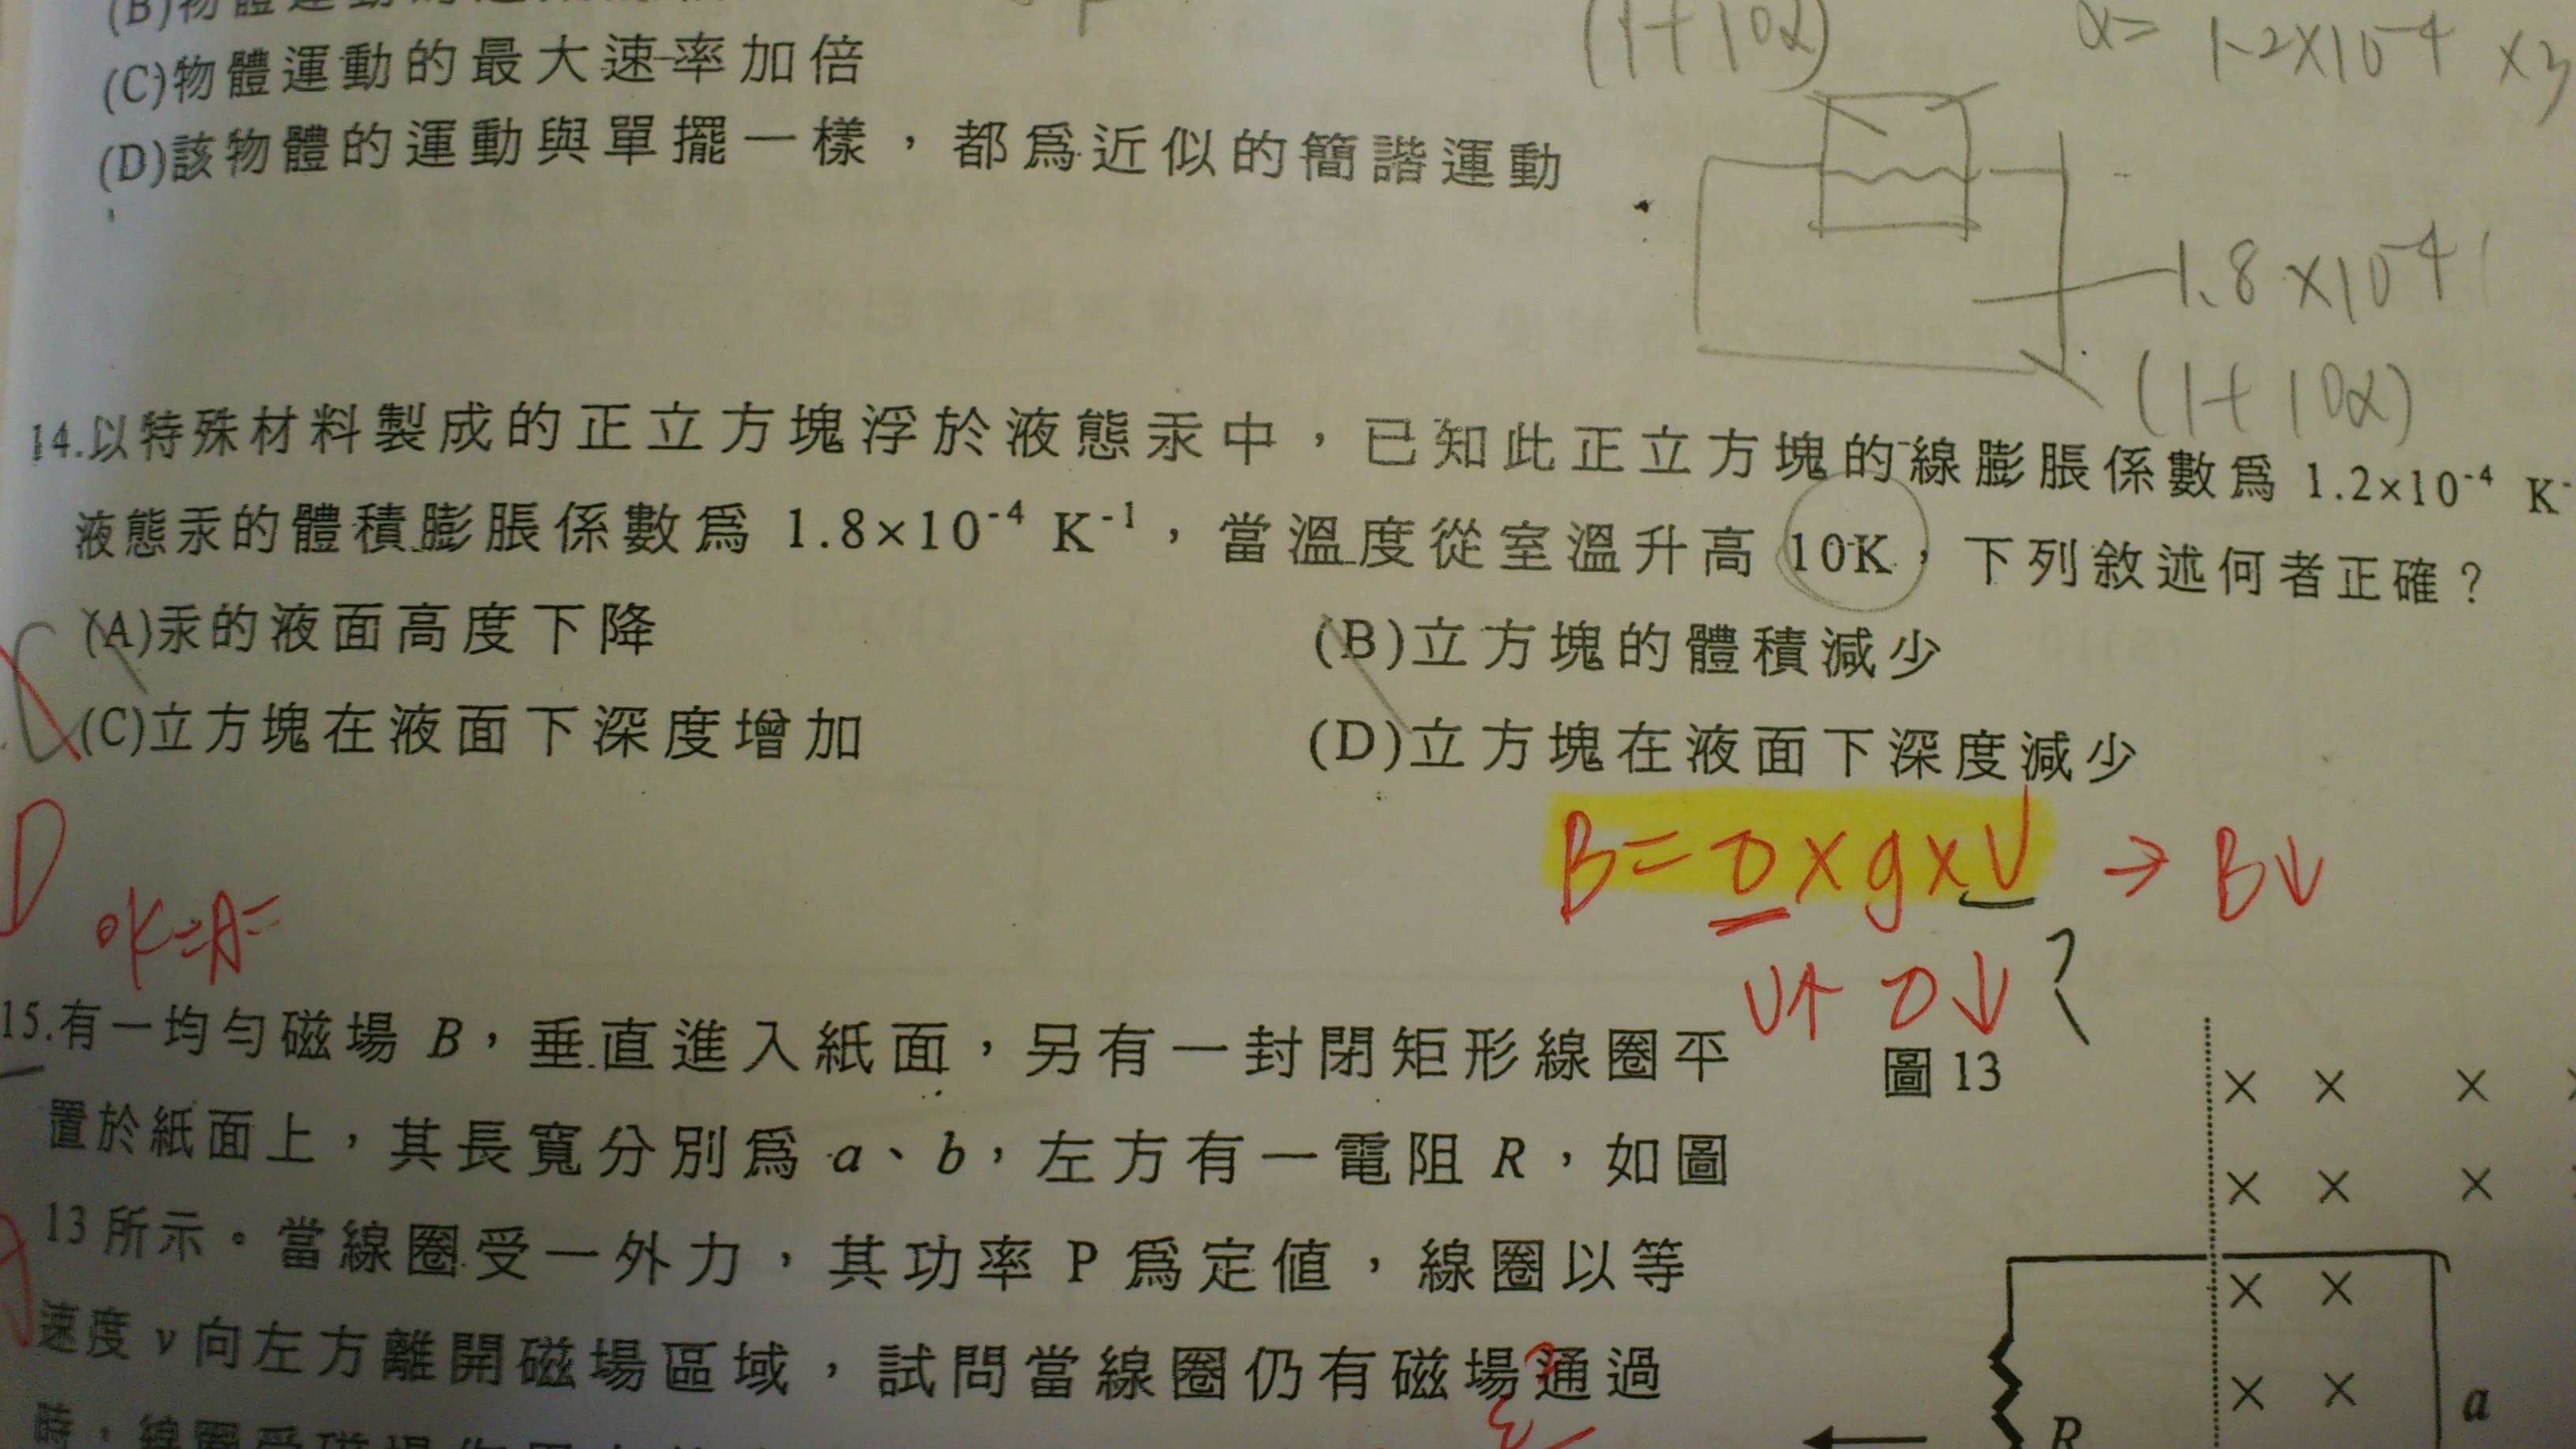 (C)物體運動的最大速率加倍
(D)該物體的運動與單擺一樣，都為近似的簡諧運動
(1+10α)
α= 1.2×10-4 ×3
1.8×10-4
(1+10α)
14.以特殊材料製成的正立方塊浮於液態汞中，已知此正立方塊的線膨脹係數為 1.2×10-4 K-
液態汞的體積膨脹係數為 1.8×10-4 K-1，當溫度從室溫升高 10K，下列敘述何者正確？
(A)汞的液面高度下降
(B)立方塊的體積減少
(C)立方塊在液面下深度增加
(D)立方塊在液面下深度減少
D
B=D×g×V → B↓
V↑ D↓ ?
15.有一均勻磁場 B，垂直進入紙面，另有一封閉矩形線圈平
置於紙面上，其長寬分別為 a、b，左方有一電阻 R，如圖
13 所示。當線圈受一外力，其功率 P 為定值，線圈以等
速度 v 向左方離開磁場區域，試問當線圈仍有磁場通過
圖 13
R
a